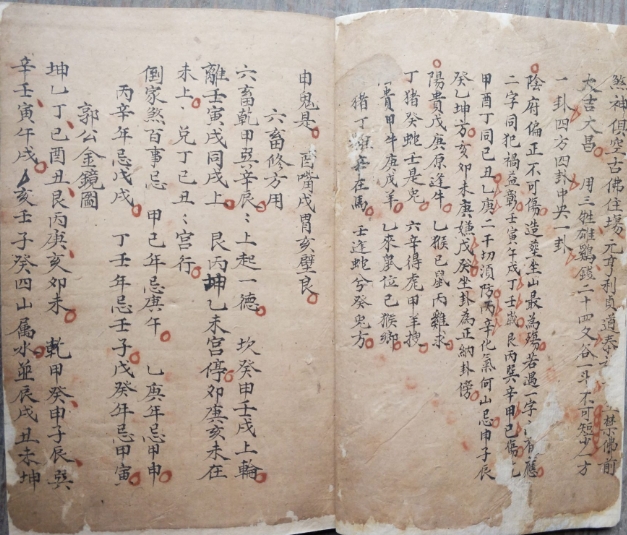 煞神俱空古佛住場元亨利貞道泰
禁佛前
大吉大昌 用三牲雄鷄錢二十四文谷一斗不可短少一方
一卦四方四卦中央一卦
陰府偏正不可傷造塟坐山最為殃若遇一字
二字同犯禍益壬寅午戌丁壬歲艮丙巽辛甲己傷乙
甲酉丁同己丑乙庚二干切須防丙辛化氣何山忌申子辰
癸乙坤方亥卯未庚嫌戊癸坐卦為正納卦傍
陽貴戊庚原逢牛 乙猴己鼠丙雞求
丁猪癸蛇壬是兔 六辛得虎甲羊
貴甲牛庚戊羊 乙來鼠位己猴鄉
猪丁 在馬壬逢蛇兮癸兔方
申鬼是酉觜戌胃亥壁艮
六畜修方用
六畜乾甲巽辛辰上起一德 坎癸甲壬戌上輪
離壬寅戌同戌上 艮丙坤乙未宮停卯庚亥未在
未上 兌丁巳丑宮行
倒家煞百事忌 甲己年忌庚午 乙庚年忌甲申
丙辛年忌戊戌 丁壬年忌壬子戊癸年忌甲寅
郭公金鏡圖
坤乙丁己酉丑艮丙庚亥卯未 乾甲癸申子辰巽
辛壬寅午戌亥壬子癸四山属水並辰戌丑未坤